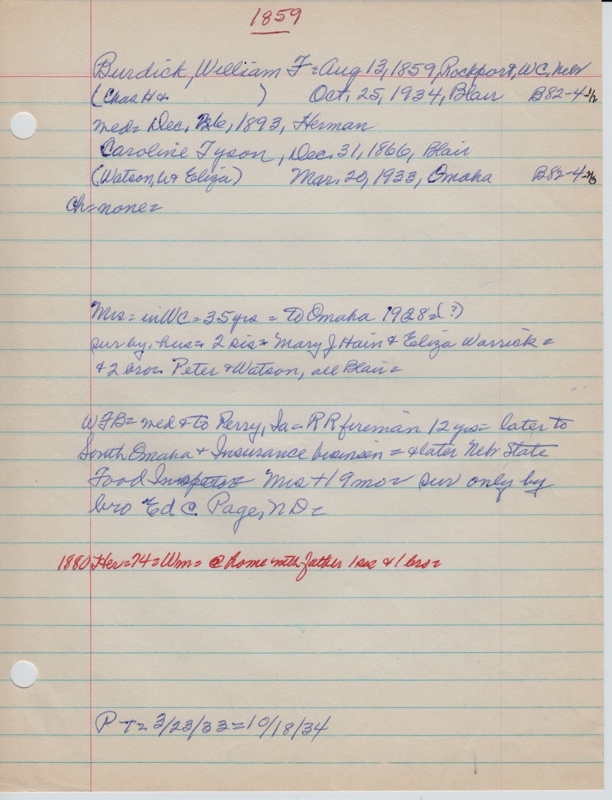 1859
Burdick, William F = Aug 13, 1859, Rockport, WC, Nebr
(Chas H & ) Oct. 25, 1934, Blair B82-4-1/2
med = Dec. 26, 1893, Herman
Caroline Tyson, Dec. 31, 1866, Blair
(Watson, & Eliza) Mar. 20, 1933, Omaha B82-4
ch = none =
Mrs = in WC = 35 yrs = to Omaha 1928 = (?)
sur by, hus = 2 sis = Mary J Hain & Eliza Warrick =
& 2 bro = Peter & Watson, all Blair =
WFB = med & to Perry, Ia = RR fireman 12 yrs = later to
South Omaha & Insurance business = & later Neb State
Food Inspector Mrs + 19 mo = sur only by
bro Ed C. Page, ND =
1880 Her = 74 = Wm = @ home with father 1 sis & 1 bro =
P - T = 3/23/33 = 10/18/34